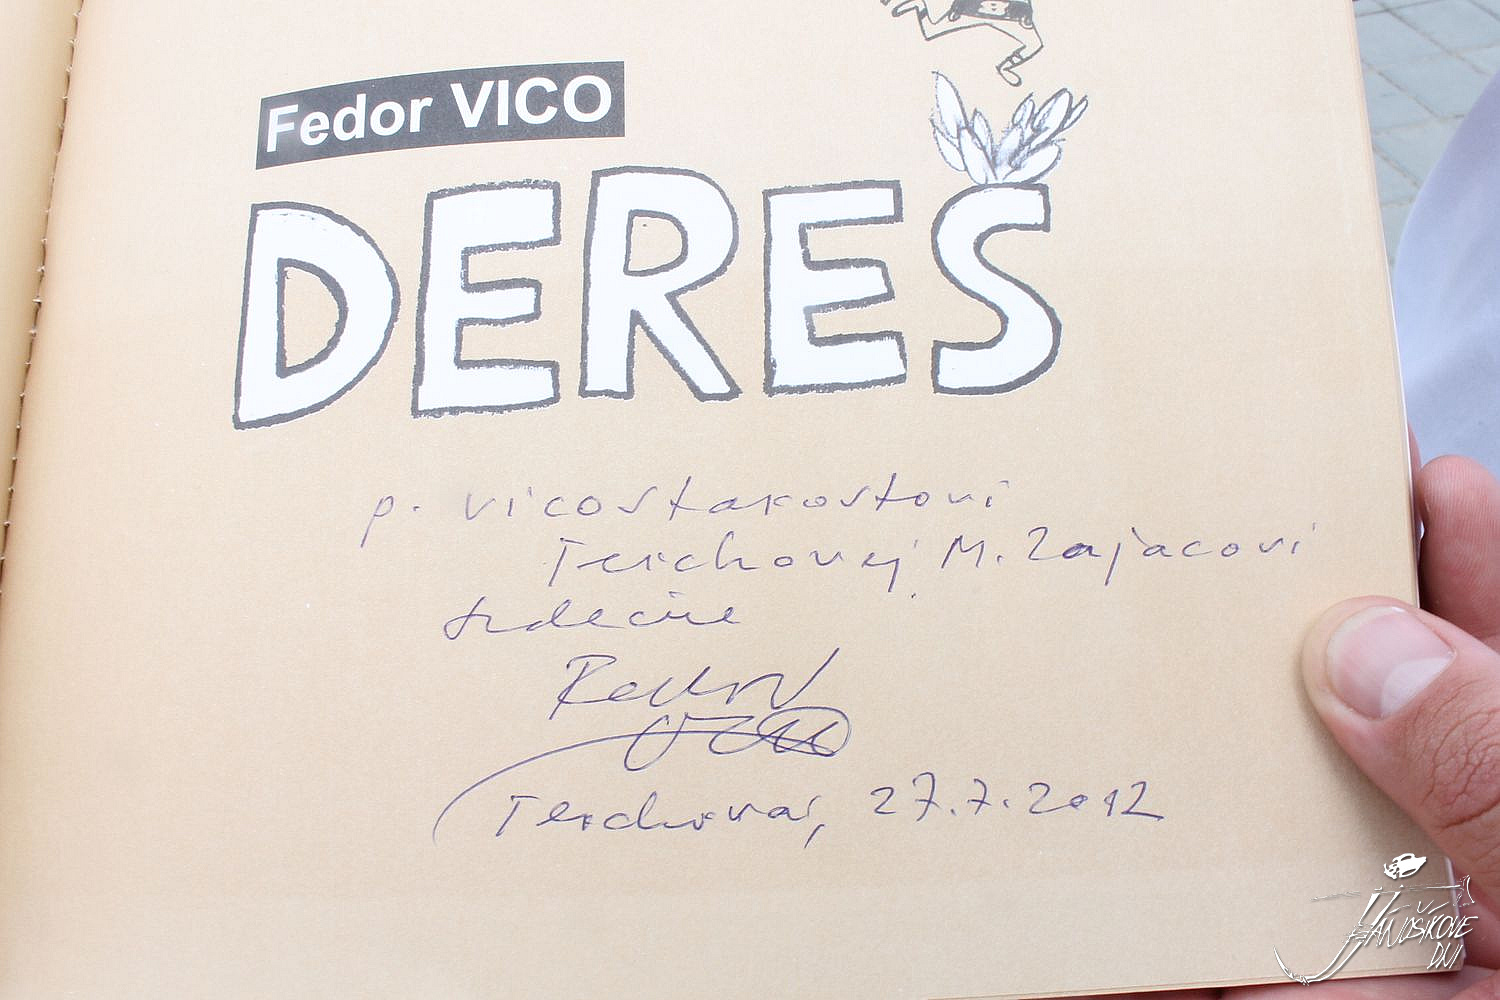 Fedor VICO
DEREŠ
p. vicostarostovi
Terchovej M. Zajacovi
srdečne
Fedor
Vico
Terchová, 27.7.2012
JÁNOŠÍKOVE
DNI